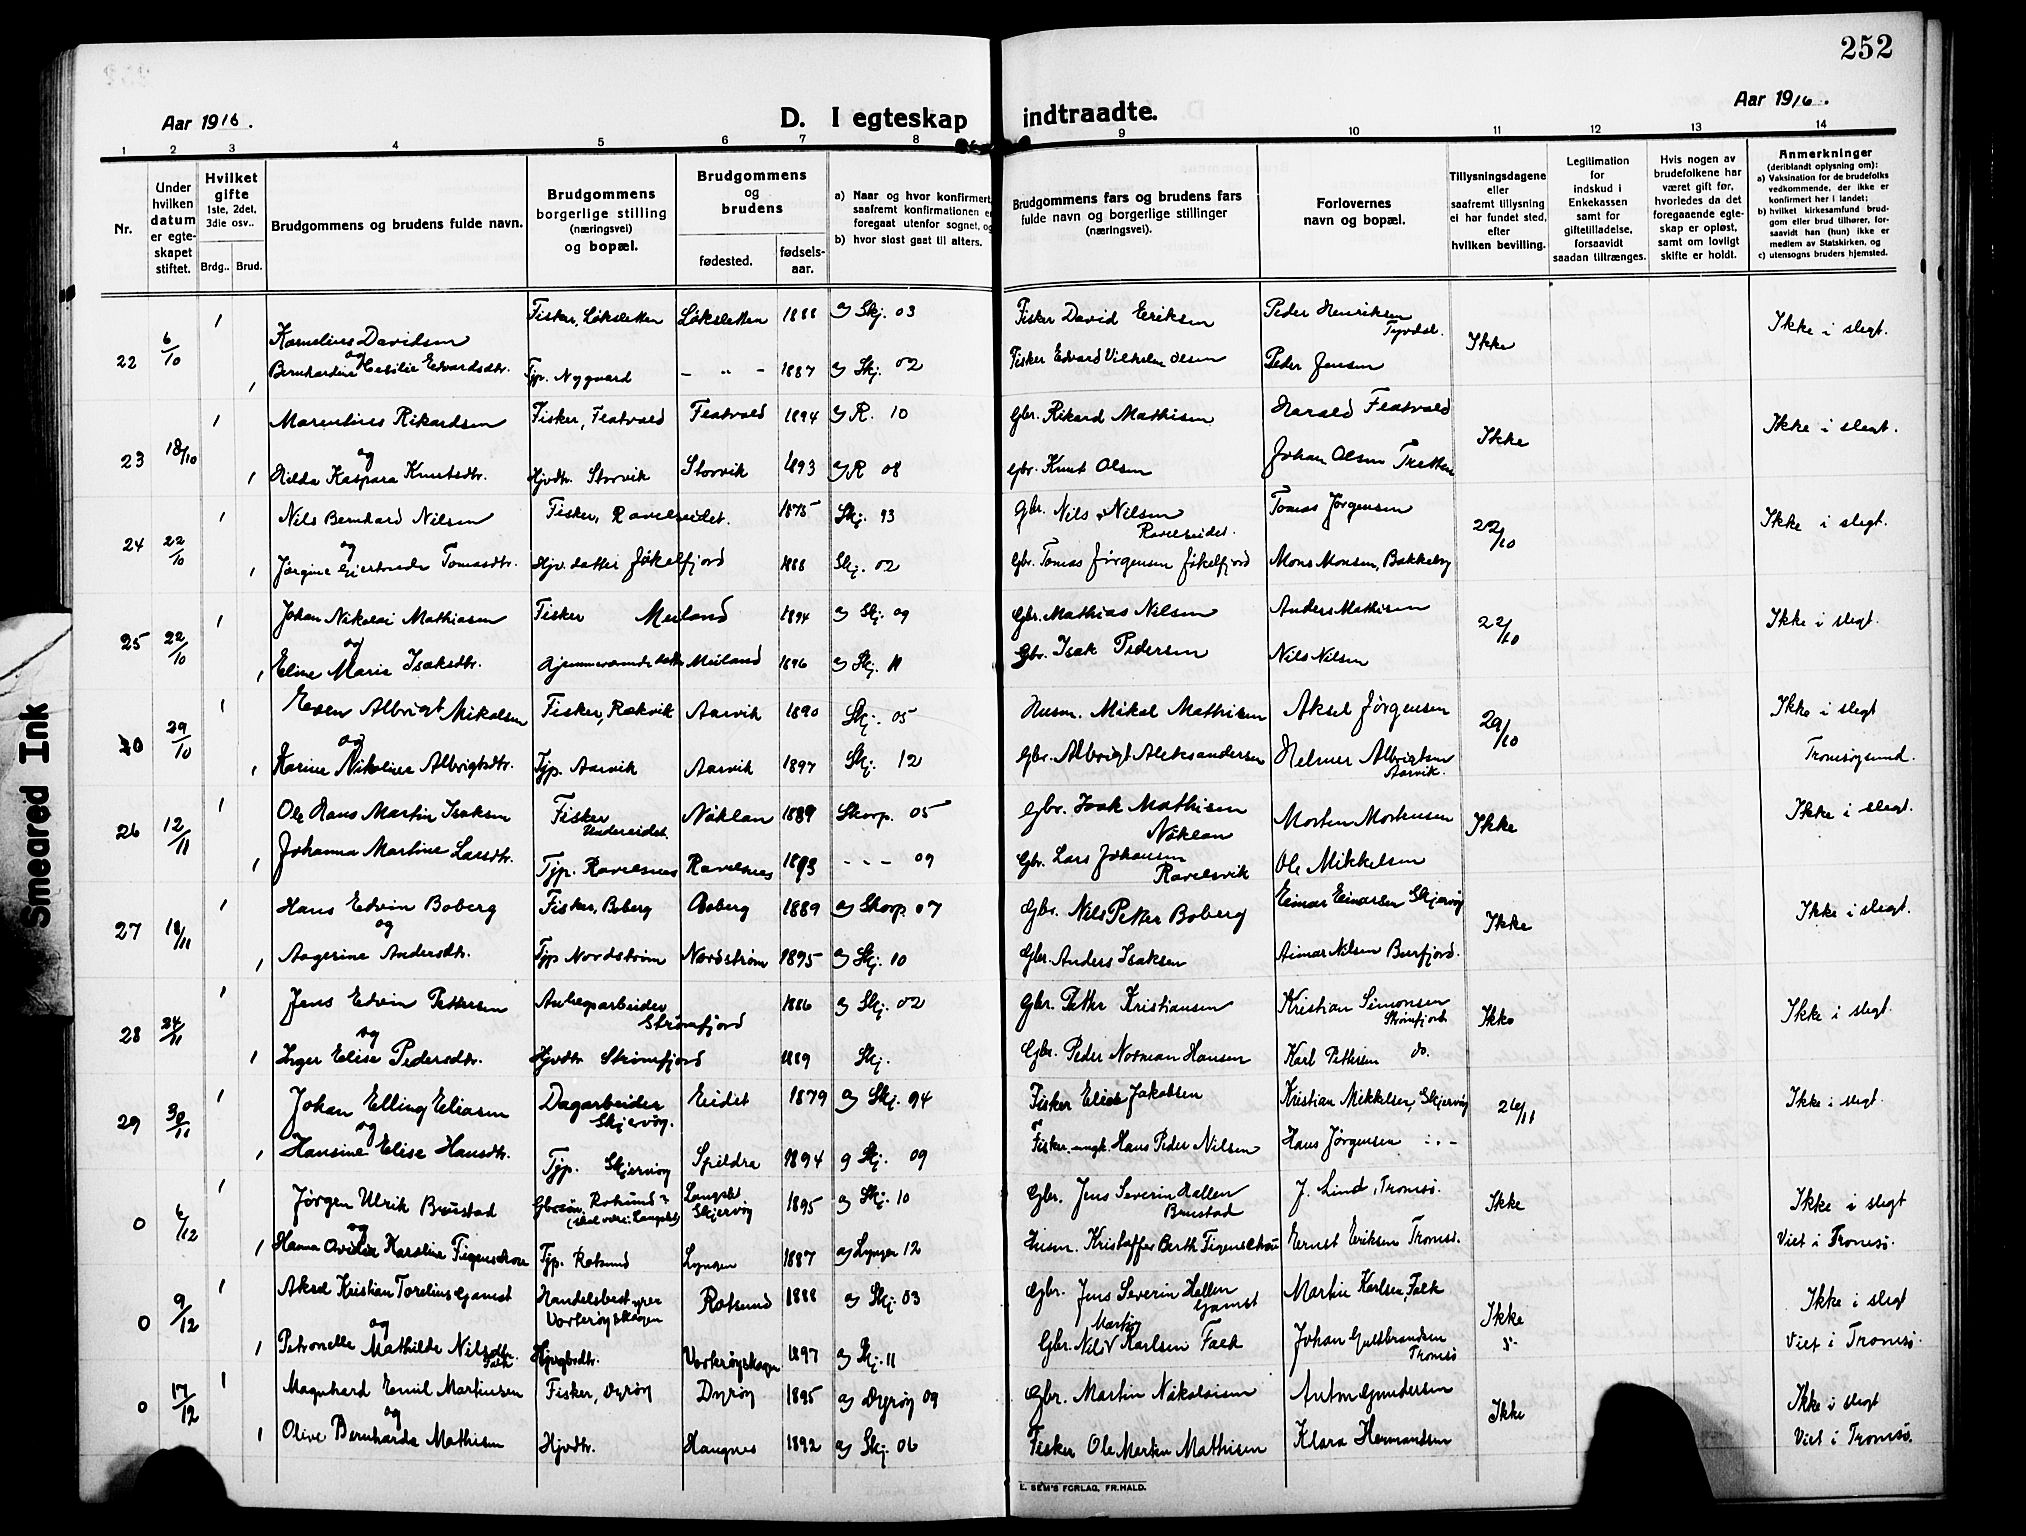 252
Aar 1916.
D. I egteskap indtraadte.
Aar 1916.
1 2 3 4 5 6 7 8 9 10 11 12 13 14
Nr.
Under hvilken datum er egteskapet stiftet.
Hvilket gifte 1ste, 2det, 3die osv..
Brdg.. Brud.
Brudgommens og brudens fulde navn.
Brudgommens borgerlige stilling (næringsvei) og bopæl.
Brudgommens og brudens
fødested. fødselsaar.
a) Naar og hvor konfirmert, saafremt konfirmationen er foregaat utenfor sognet, og
b) hvor sidst gaat til alters.
Brudgommens fars og brudens fars fulde navn og borgerlige stillinger (næringsvei).
Forlovernes navn og bopæl.
Tillysningsdagene eller saafremt tillysning ei har fundet sted, efter hvilken bevilling.
Legitimation for indskud i Enkekassen samt for giftetilladelse, forsaavidt saadan tiltrænges.
Hvis nogen av brudefolkene har været gift før, hvorledes da det foregaaende egteskap er opløst, samt om lovligt skifte er holdt.
Anmerkninger (deriblandt oplysning om):
a) Vaksination for de brudefolks vedkommende, der ikke er konfirmert her i landet;
b) hvilket kirkesamfund brudgom eller brud tilhører, forsaavidt han (hun) ikke er medlem av Statskirken, og
c) utensogns bruders hjemsted.
22 6/10 1 Kornelius Davidsen Fisker, Løksletten Løksletten 1888 a) Skj. 03 Fisker David Eriksen Peder Henriksen Ikke Ikke i slegt.
og
1 Bernhardine Cesilie Edvardsdtr. Tjp. Nygaard - " - 1887 a) Skj. 02 Fisker Edvard Vilhelm Olsen Peder Jensen
23 18/10 1 Marselius Rikardsen Fisker, Flatvold Flatvold 1894 a) R. 10 Gbr. Rikard Mathisen Harald Flatvold Ikke Ikke i slegt.
og
1 Hilda Kaspara Knutsdtr. Hjvdtr. Storvik Storvik 1893 a) R 08 Gbr. Knut Olsen Johan Olsen Tretten
24 22/10 1 Nils Bernhard Nilsen Fisker, Ravelseidet. 1875 Skj. 93 Gbr. Nils Nilsen Ravelseidet. Tomas Jørgensen 22/10 Ikke i slegt.
og
1 Jørgine Giertrude Tomasdtr. Hjv. datter Jøkelfjord 1888 Skj. 02 Gbr. Tomas Jørgensen Jøkelfjord Mons Monsen, Bakkeby
25 22/10 1 Johan Nikolai Mathiasen Fisker Meiland 1894 a) Skj. 09 Gbr. Mathias Nilsen Anders Mathisen 22/10 Ikke i slegt.
og
1 Eline Marie Isaksdtr. Hjemmeværende datter Meiland 1896 a) Skj. 11 Gbr. Isak Pedersen Nils Nilsen
0 29/10 1 Albrigt Mikalsen Fisker, Rakvik Aarvik 1890 Skj. 05 Husm. Mikal Mathisen Aksel Jørgensen 29/10 Ikke i slegt
og
1 Karine Nikoline Albrigtsdtr. Tjp. Aarvik Aarvik 1897 Skj. 12 Gbr. Albrigt Aleksandersen Helmer Albrigtsen Aarvik. Tromsøysund.
26 12/11 1 Ole Hans Martin Isaksen Fisker Undereidet. Nöklan 1889 Skorp. 05 Gbr. Isak Mathisen Nöklan Morten Mortensen Ikke Ikke i slegt.
1 Johanna Martine Larsdtr. Tjp. Ravelsnes Ravelsnes 1893 - - - 09 Gbr. Lars Johansen Ravelsvik Ole Mikkelsen
27 18/11 1 Hans Edvin Boberg Fisker, Boberg Boberg 1889 a) Skorp. 07 Gbr. Nils Petter Boberg Einar Einarsen Skjervøy Ikke Ikke i slegt.
og
1 Aagerine Andersdtr. Tjp Nordstrøm Nordstrøm 1895 a) Skj. 10 Gbr. Anders Isaksen Nilsen Burfjord.
28 24/11 1 Jens Edvin Pettersen Anlegsarbeider Strømfjord 1886 a) Skj. 02 Gbr. Petter Kristiansen Kristian Simonsen Strømfjord Ikke Ikke i slegt.
og
1 Inger Elise Pedersdtr. Hjvdtr Strømfjord 1889 Skj. Gbr. Peder Norman Hansen Karl Pettersen do.
29 30/11 1 Johan Elling Eliasen Dagarbeider Skjervøy. Eidet 1879 a) Skj. 94 Fisker Elias Jakobsen Kristian Mikkelsen, Skjervøy 26/11 Ikke i slegt.
og
1 Hansine Elise Hansdtr. Tjp. Skjervøy Spildra 1894 a Skj. 09 Fisker, ungk. Hans Peder Nilsen Hans Jørgensen - " -
0 6/12 1 Jørgen Ulrik Brustad Gbrsøn, Rotsund Langslet Skjervøy 1895 a) Skj. 10 Gbr. Jens Severin Hallen Brustad J. Lind, Tromsø. Ikke Ikke i slegt
(skal være: Langslet)
og
1 Hanna Ovidia Karoline Figenschou Tjp. Rotsund Lyngen 1887 a) Lyngen 12 Husm. Kristoffer Berth Figenschou Ernst Eriksen Tromsø. Viet i Tromsø.
0 9/12 1 Aksel Kristian Torelius Gamst Handelsbestyrer Vorterøyskagen Rotsund 1888 a) Skj. 03 Gbr. Jens Severin Hallen Gamst Martin Karlsen Falk Ikke Ikke i slegt
og
1 Petronelle Mathilde Nilsdtr. Falk Hjvgbrdtr. Vorterøyskagen 1897 a) Skj. 11 Gbr. Nils Martin Karlsen Falk Johan Guldbrandsen Tromsø Viet i Tromsø.
0 17/12 1 Magnhard Emil Martinsen Fisker, Dyrøy Dyrøy 1895 a) Dyrøy 09 Gbr. Martin Nikolaisen Anton Gundersen Ikke Ikke i slegt
og
1 Olive Bernharda Mathisen Hjvdtr. Haugnes 1892 a) Skj. 06 Fisker Ole Martin Mathisen Klara Hermandsen Viet i Tromsø.
E. SEM'S FORLAG, FR.HALD.
Smeared Ink